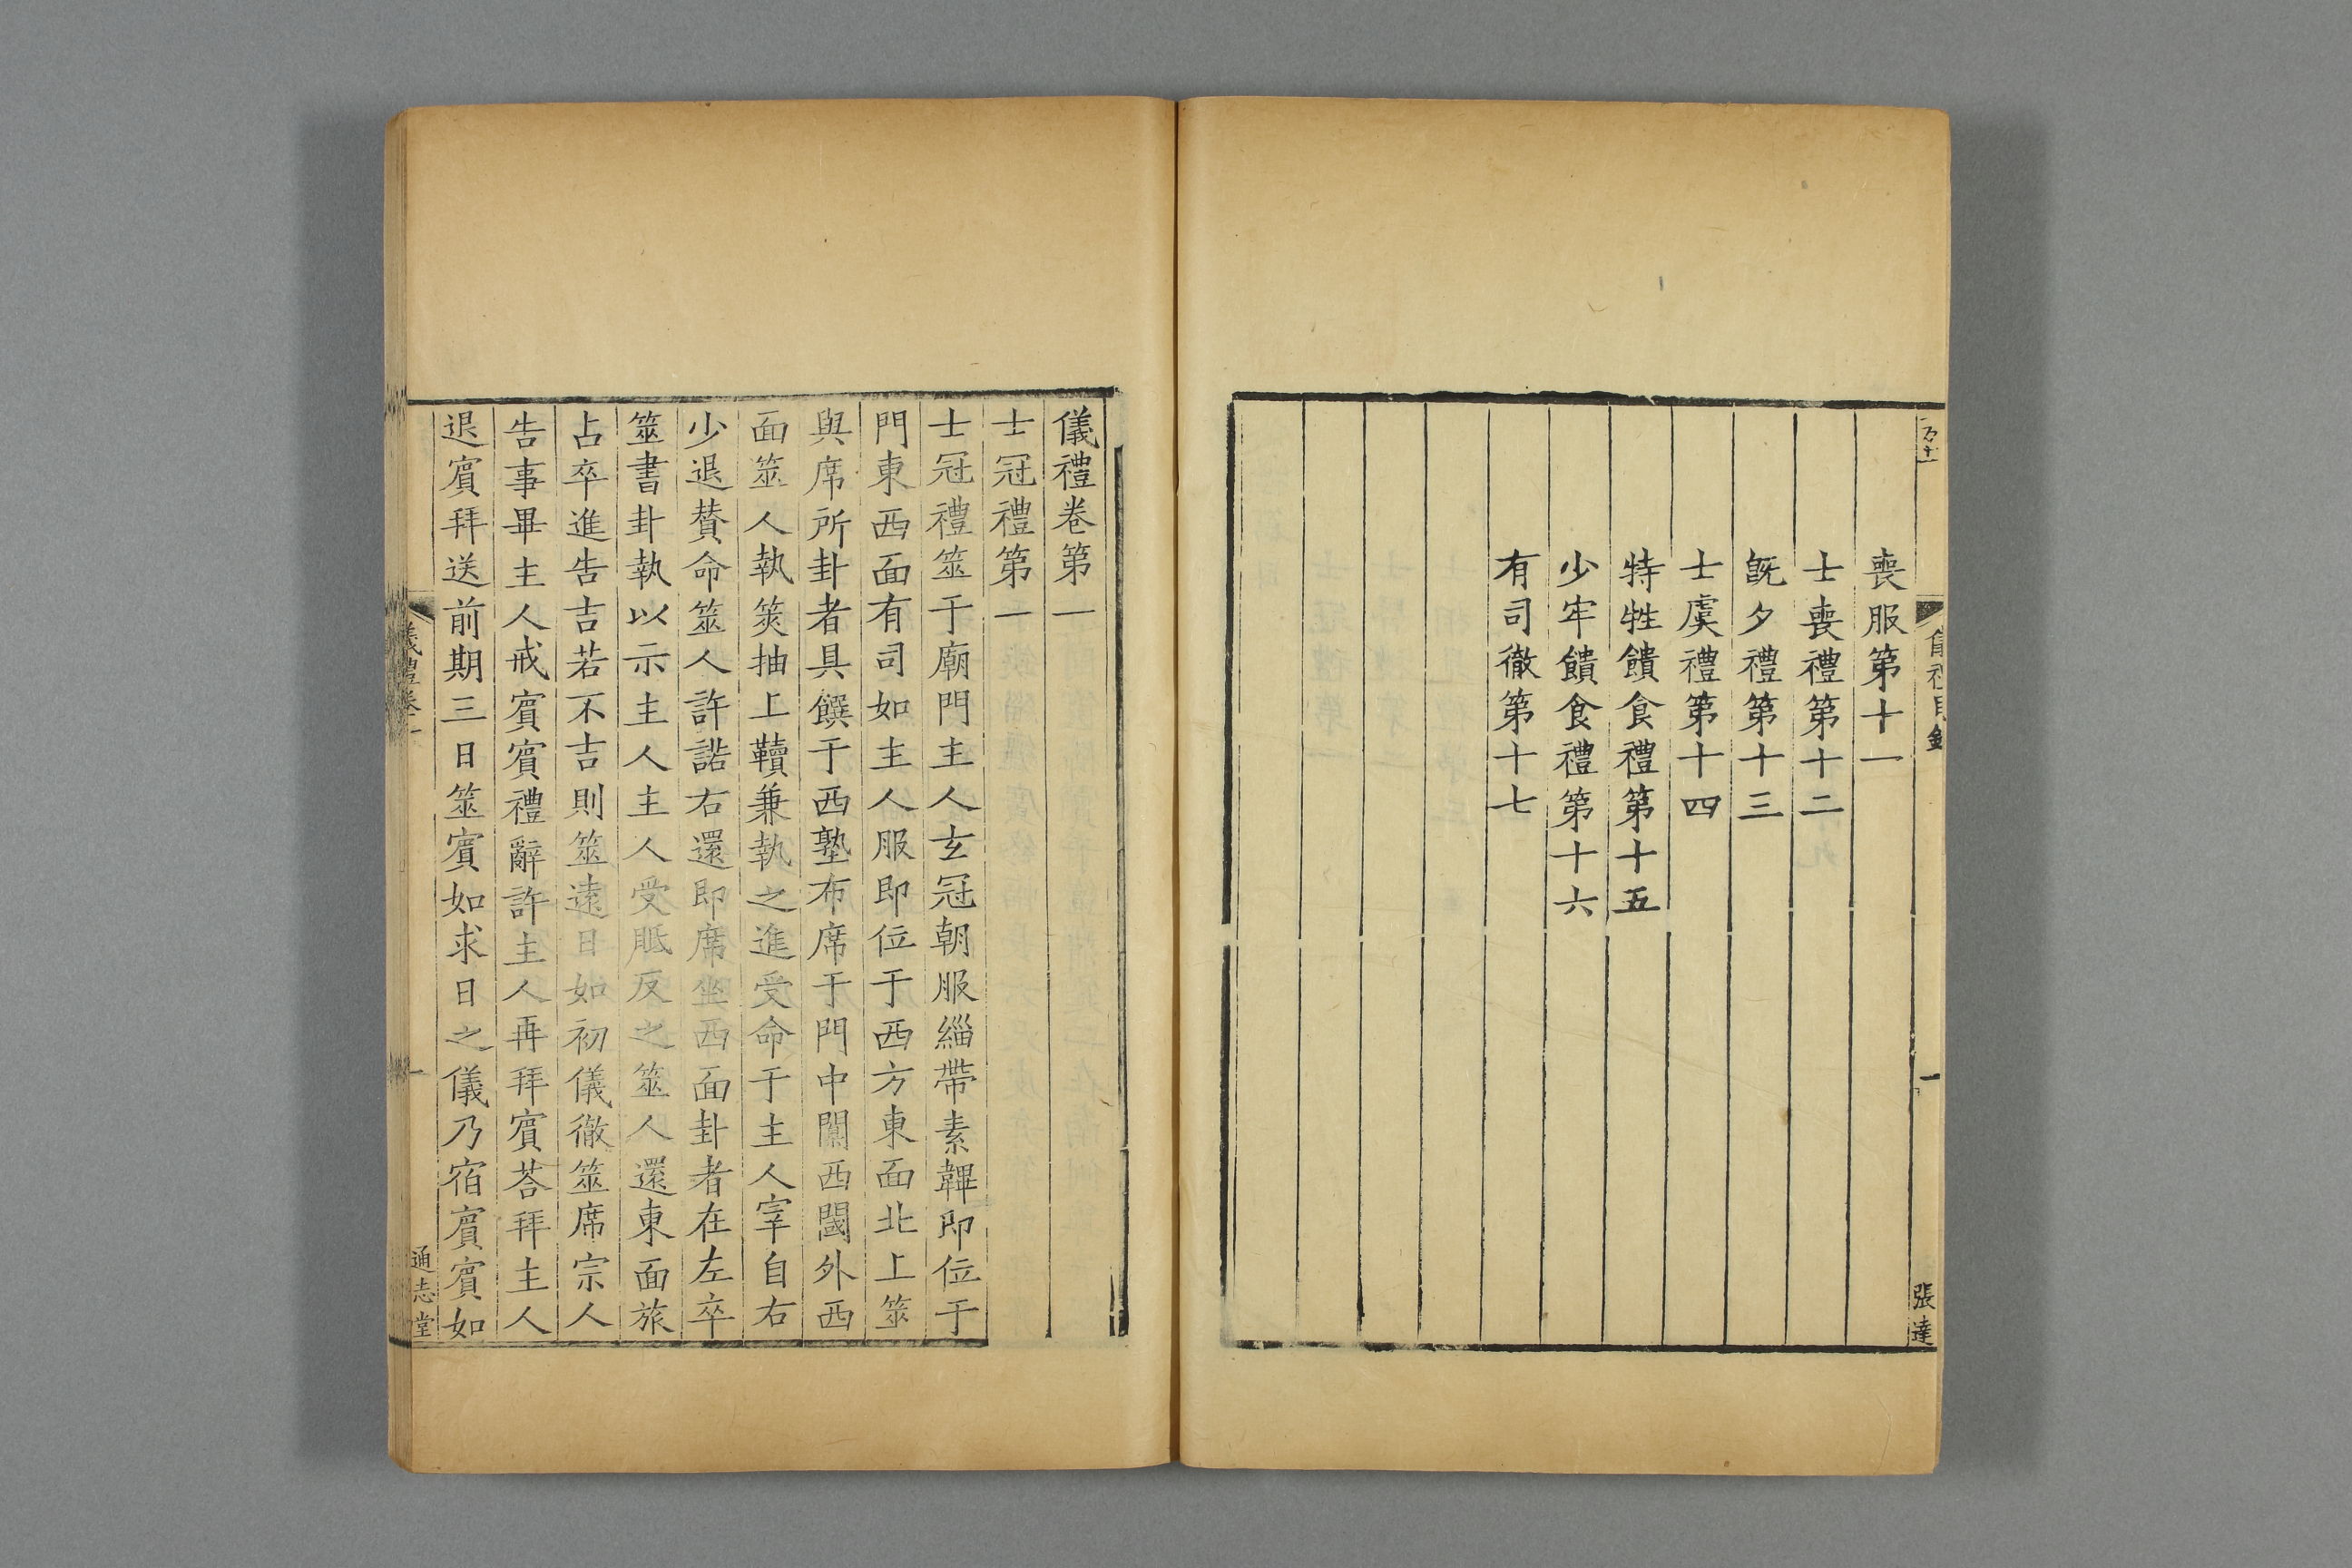 喪服第十一
士喪禮第十二
旣夕禮第十三
士虞禮第十四
特牲饋食禮第十五
少牢饋食禮第十六
有司徹第十七
張達
儀禮卷第一
士冠禮第一
士冠禮筮于廟門主人玄冠朝服緇帶素韠即位于
門東西面有司如主人服即位于西方東面北上筮
與席所卦者具饌于西塾布席于門中闑西閾外西
面筮人執筴抽上韇兼執之進受命于主人宰自右
少退賛命筮人許諾右還即席坐西面卦者在左卒
筮書卦執以示主人主人受眡反之筮人還東面旅
占卒進告吉若不吉則筮遠日如初儀徹筮席宗人
告事畢主人戒賓賓禮辭許主人再拜賓荅拜主人
退賓拜送前期三日筮賓如求日之儀乃宿賓賓如
儀禮卷一
一
通志堂